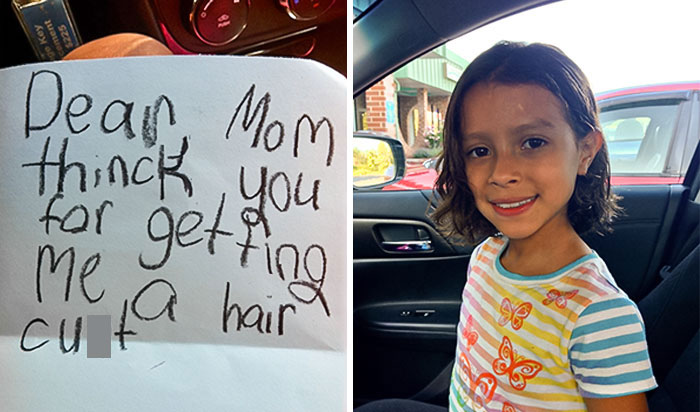 PUSH
Dear Mom
thinck you
for getting
Me a hair
cu t